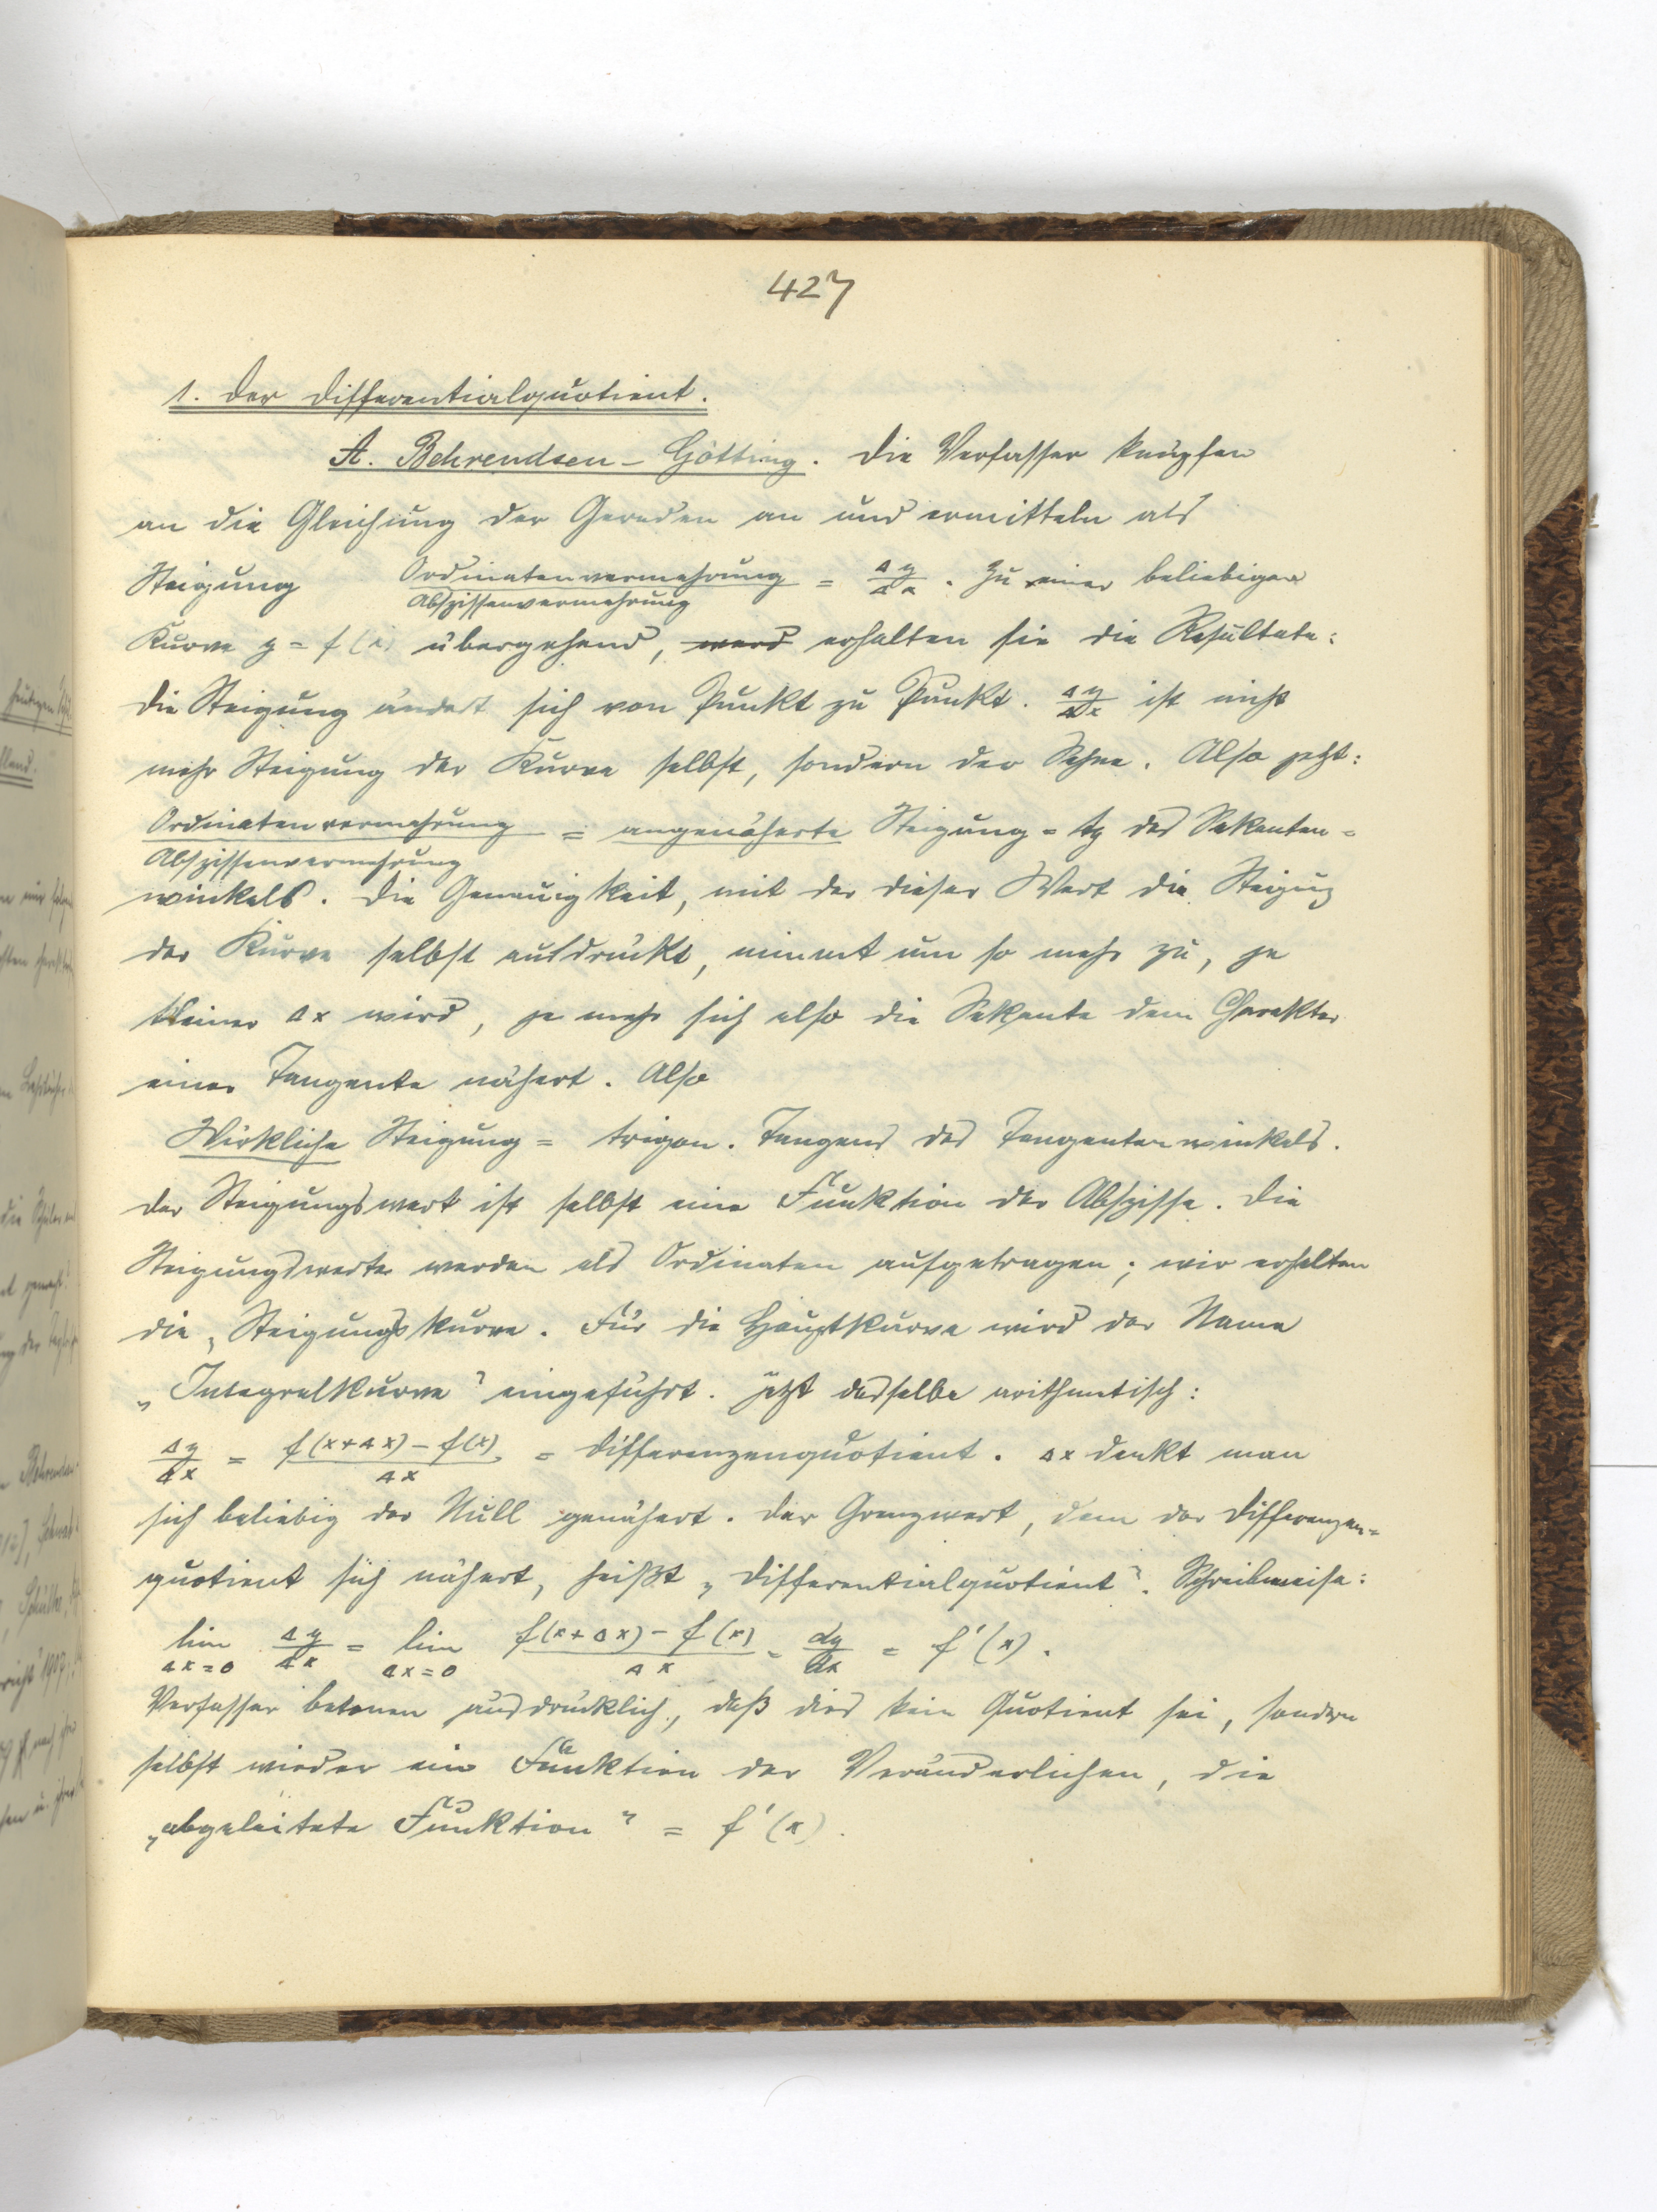 427
1. Der Differentialquotient.
A. Behrendsen - Götting. Die Verfasser knüpfen
an die Gleichung der Geraden an und ermitteln als
Steigung Ordinatenvermehrung / Abszissenvermehrung = Δy/Δx. Zu einer beliebigen
Kurve y = f(x) übergehend, werd erhalten sie die Resultate:
Die Steigung ändert sich von Punkt zu Punkt. Δy/Δx ist nicht
mehr Steigung der Kurve selbst, sondern der Sehne. Also jetzt:
Ordinatenvermehrung / Abszissenvermehrung = angenäherte Steigung = tg des Sekanten-
winkels. Die Genauigkeit, mit der dieser Wert die Steigung
der Kurve selbst ausdrückt, nimmt um so mehr zu, je
kleiner Δx wird, je mehr sich also die Sekante dem Charakter
einer Tangente nähert. Also
Wirkliche Steigung = trigon. Tangens des Tangentenwinkels.
Der Steigungswert ist selbst eine Funktion der Abszisse. Die
Steigungswerte werden als Ordinaten aufgetragen; wir erhalten
die „Steigungskurve. Für die Hauptkurve wird der Name
„Integralkurve" eingeführt. Jetzt dasselbe arithmetisch:
Δy/Δx = f(x+Δx) - f(x) / Δx = Differenzenquotient. Δx denkt man
sich beliebig der Null genähert. Der Grenzwert, dem der Differenzen-
quotient sich nähert, heißt „Differentialquotient". Schreibweise:
lim Δx=0 Δy/Δx = lim Δx=0 f(x+Δx) - f(x) / Δx = dy/dx = f'(x).
Verfasser betonen ausdrücklich, daß dies kein Quotient sei, sondern
selbst wieder eine Funktion der Veränderlichen, die
„abgeleitete Funktion" = f'(x).